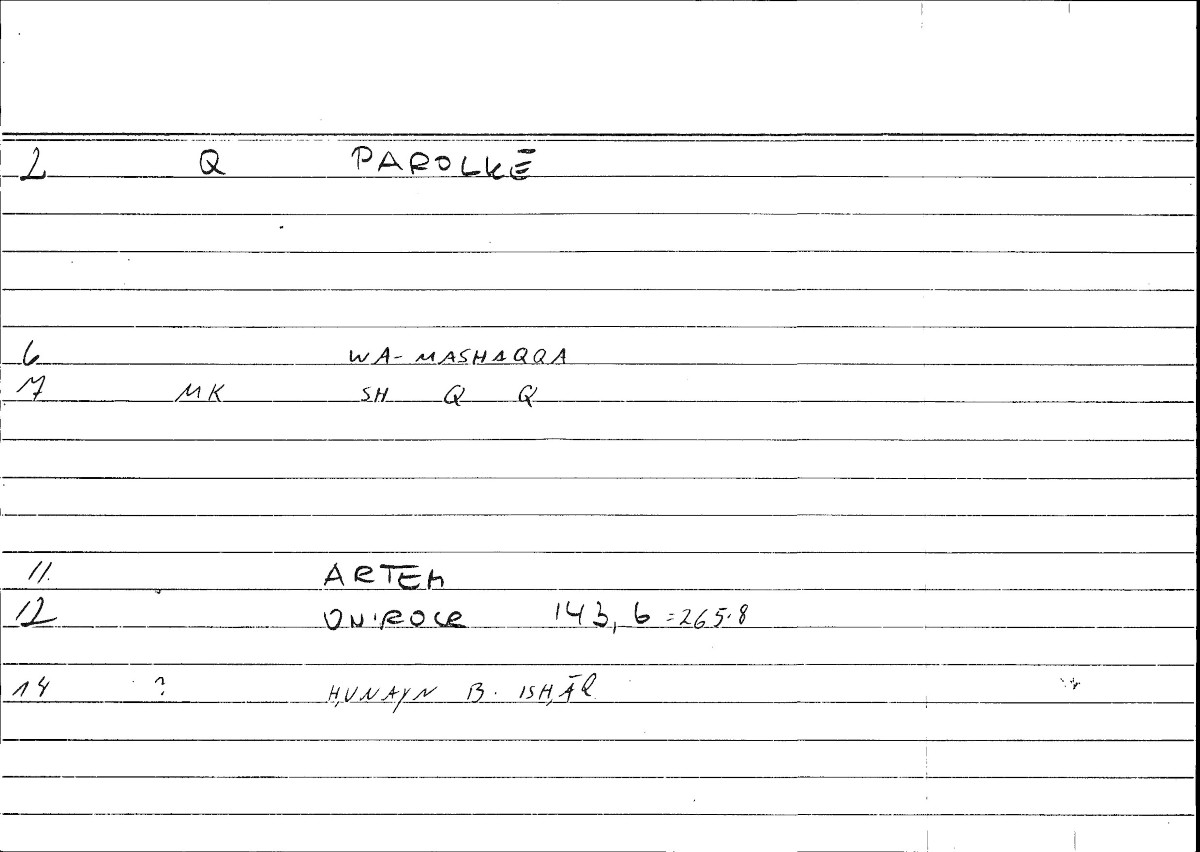 2 Q PAROLKĒ
6 WA-MASHAQQA
7 MK SH Q Q
11. ARTEM
12 ONIROCR 143, 6 =265.8
14 ? ḤUNAYN B. ISḤĀQ